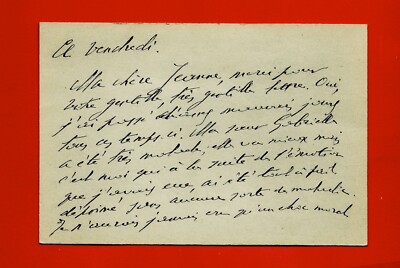 Ce vendredi.
Ma chère Jeanne, merci pour
votre gentille, très gentille lettre. Oui,
j'ai passé de mauvais jours
tous ces temps-ci. Ma sœur Gabrielle
a été très malade, elle va mieux mais
c'est moi qui à la suite de l'émotion
que j'avais eue, ai été tout à fait
sans aucune sorte de maladie.
Je n'aurais jamais cru qu'un choc moral